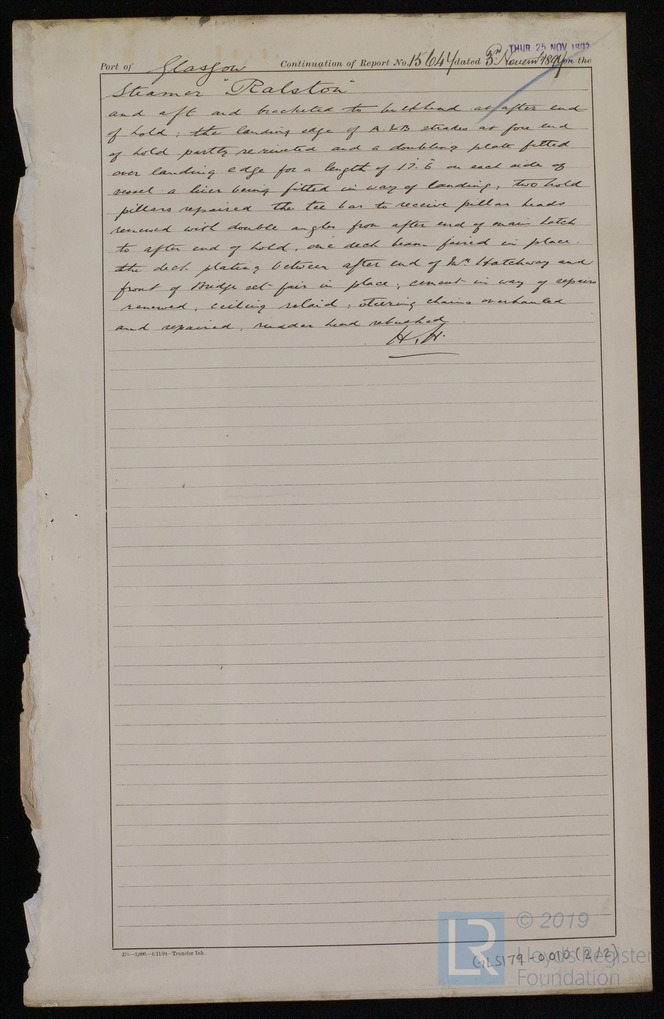 THUR 25 NOV 1897
Port of Glasgow Continuation of Report No. 15644 dated 3rd Novemr 1897 on the
Steamer "Ralston"
and aft and bracketed to bulkhead at after end
of hold; the landing edge of A & B strakes at fore end
of hold partly reriveted and a doubling plate fitted
over landing edge for a length of 17.6 on each side of
vessel a liner being fitted in way of landing; two hold
pillars repaired the tee bar to receive pillar heads
renewed with double angles from after end of main hatch
to after end of hold, one deck beam faired in place.
the deck plating between after end of Mn Hatchway and
front of Bridge set fair in place, cement in way of repairs
renewed, ceiling relaid, steering chains overhauled
and repaired, rudder head rebushed.
H. H.
Transfer Ink.
© 2019
LR Lloyd's Register
Foundation
GLS179-0010 (2/2)